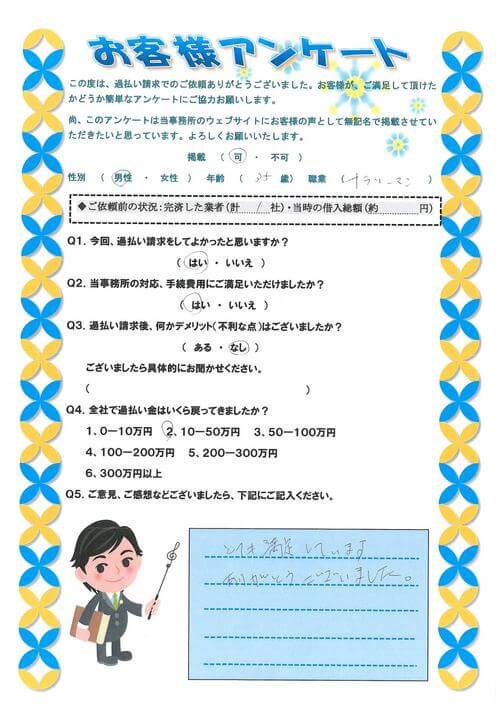 お客様アンケート
この度は、過払い請求でのご依頼ありがとうございました。お客様が、ご満足して頂けた
かどうか簡単なアンケートにご協力お願いします。
尚、このアンケートは当事務所のウェブサイトにお客様の声として無記名で掲載させてい
ただきたいと思っています。よろしくお願いいたします。
掲載 （ 可 ・ 不可 ）
性別 （ 男性 ・ 女性 ） 年齢 （ 歳） 職業 （ サラリーマン ）
◆ご依頼前の状況：完済した業者（計 1 社）・当時の借入総額（約 円）
Q1. 今回、過払い請求をしてよかったと思いますか？
（ はい ・ いいえ ）
Q2. 当事務所の対応、手続費用にご満足いただけましたか？
（ はい ・ いいえ ）
Q3. 過払い請求後、何かデメリット（不利な点）はございましたか？
（ ある ・ なし ）
ございましたら具体的にお聞かせください。
（ ）
Q4. 全社で過払い金はいくら戻ってきましたか？
1、0－10万円 2、10－50万円 3、50－100万円
4、100－200万円 5、200－300万円
6、300万円以上
Q5. ご意見、ご感想などございましたら、下記にご記入ください。
とても満足しています
ありがとうございました。